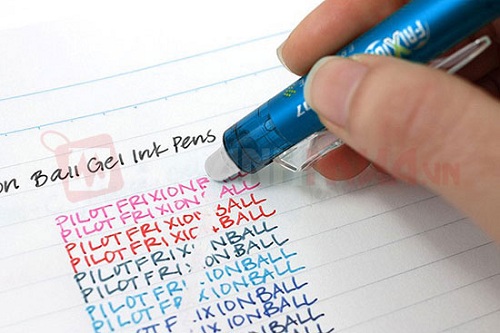 FRIXION
07
on Ball Gel Ink Pens
PILOT FRIXION
PILOT FRIXION ALL
PILOT FRIXIO BALL
PILOT FRIXI BALL
PILOT FRIXI NBALL
PILOT FRI ONBALL
PILOT FRI IONBALL
PILOT F IONBALL
PILOT F IXIONBALL
IXIONBALL